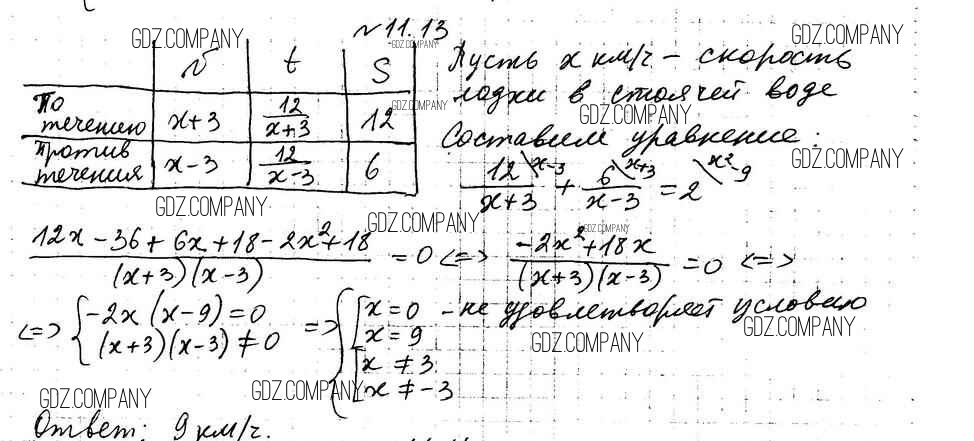 N 11.13
v t S
По течению x+3 12/(x+3) 12
Против течения x-3 12/(x-3) 6
Пусть x км/ч – скорость
лодки в стоячей воде
Составим уравнение:
12/(x+3) \x-3 + 6/(x-3) \x+3 = 2 \x²-9
(12x - 36 + 6x + 18 - 2x² + 18)/((x+3)(x-3)) = 0 <=> (-2x² + 18x)/((x+3)(x-3)) = 0 <=>
<=> { -2x(x-9) = 0
(x+3)(x-3) ≠ 0
=> { [ x = 0 - не удовлетворяет условию
x = 9
x ≠ 3
x ≠ -3
Ответ: 9 км/ч.
GDZ.COMPANY
GDZ.COMPANY
GDZ.COMPANY
GDZ.COMPANY
GDZ.COMPANY
GDZ.COMPANY
GDZ.COMPANY
GDZ.COMPANY
GDZ.COMPANY
GDZ.COMPANY
GDZ.COMPANY
GDZ.COMPANY
GDZ.COMPANY